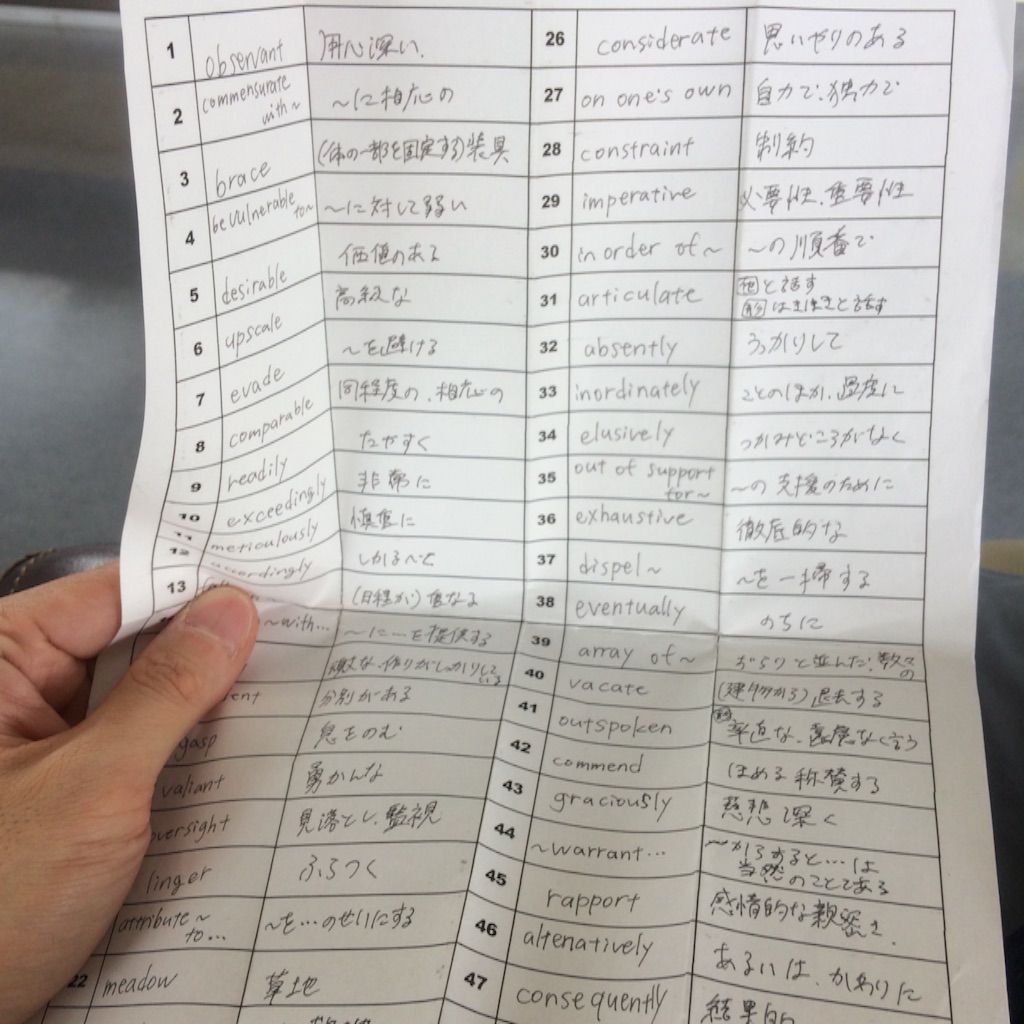 1 observant 用心深い.
2 commensurate with~ ~に相応の
3 brace (体の一部を固定する)装具
4 be vulnerable to~ ~に対して弱い
5 desirable 価値のある
6 upscale 高級な
7 evade ~を避ける
8 comparable 同程度の、相応の
9 readily たやすく
10 exceedingly 非常に
11 meticulously 慎重に
12 accordingly しかるべく
13 (日程が)重なる
~with... ~に…を提供する
頑丈な、作りがしっかりしている
ent 分別がある
gasp 息をのむ
valiant 勇かんな
oversight 見落とし、監視
linger ぶらつく
attribute~ to... ~を…のせいにする
22 meadow 草地
26 considerate 思いやりのある
27 on one's own 自力で、独力で
28 constraint 制約
29 imperative 必要性、重要性
30 in order of~ ~の順番で
31 articulate と話す
はきはきと話す
32 absently うっかりして
33 inordinately ことのほか、過度に
34 elusively つかみどころがなく
35 out of support for~ ~の支援のために
36 exhaustive 徹底的な
37 dispel~ ~を一掃する
38 eventually のちに
39 array of~ ずらりと並んだ、数々の
40 vacate (建物から)退去する
41 outspoken 率直な、遠慮なく言う
42 commend ほめる 称賛する
43 graciously 慈悲深く
44 ~warrant... ~からすると…は当然のことである
45 rapport 感情的な親密さ
46 altenatively あるいは、かわりに
47 consequently 結果的